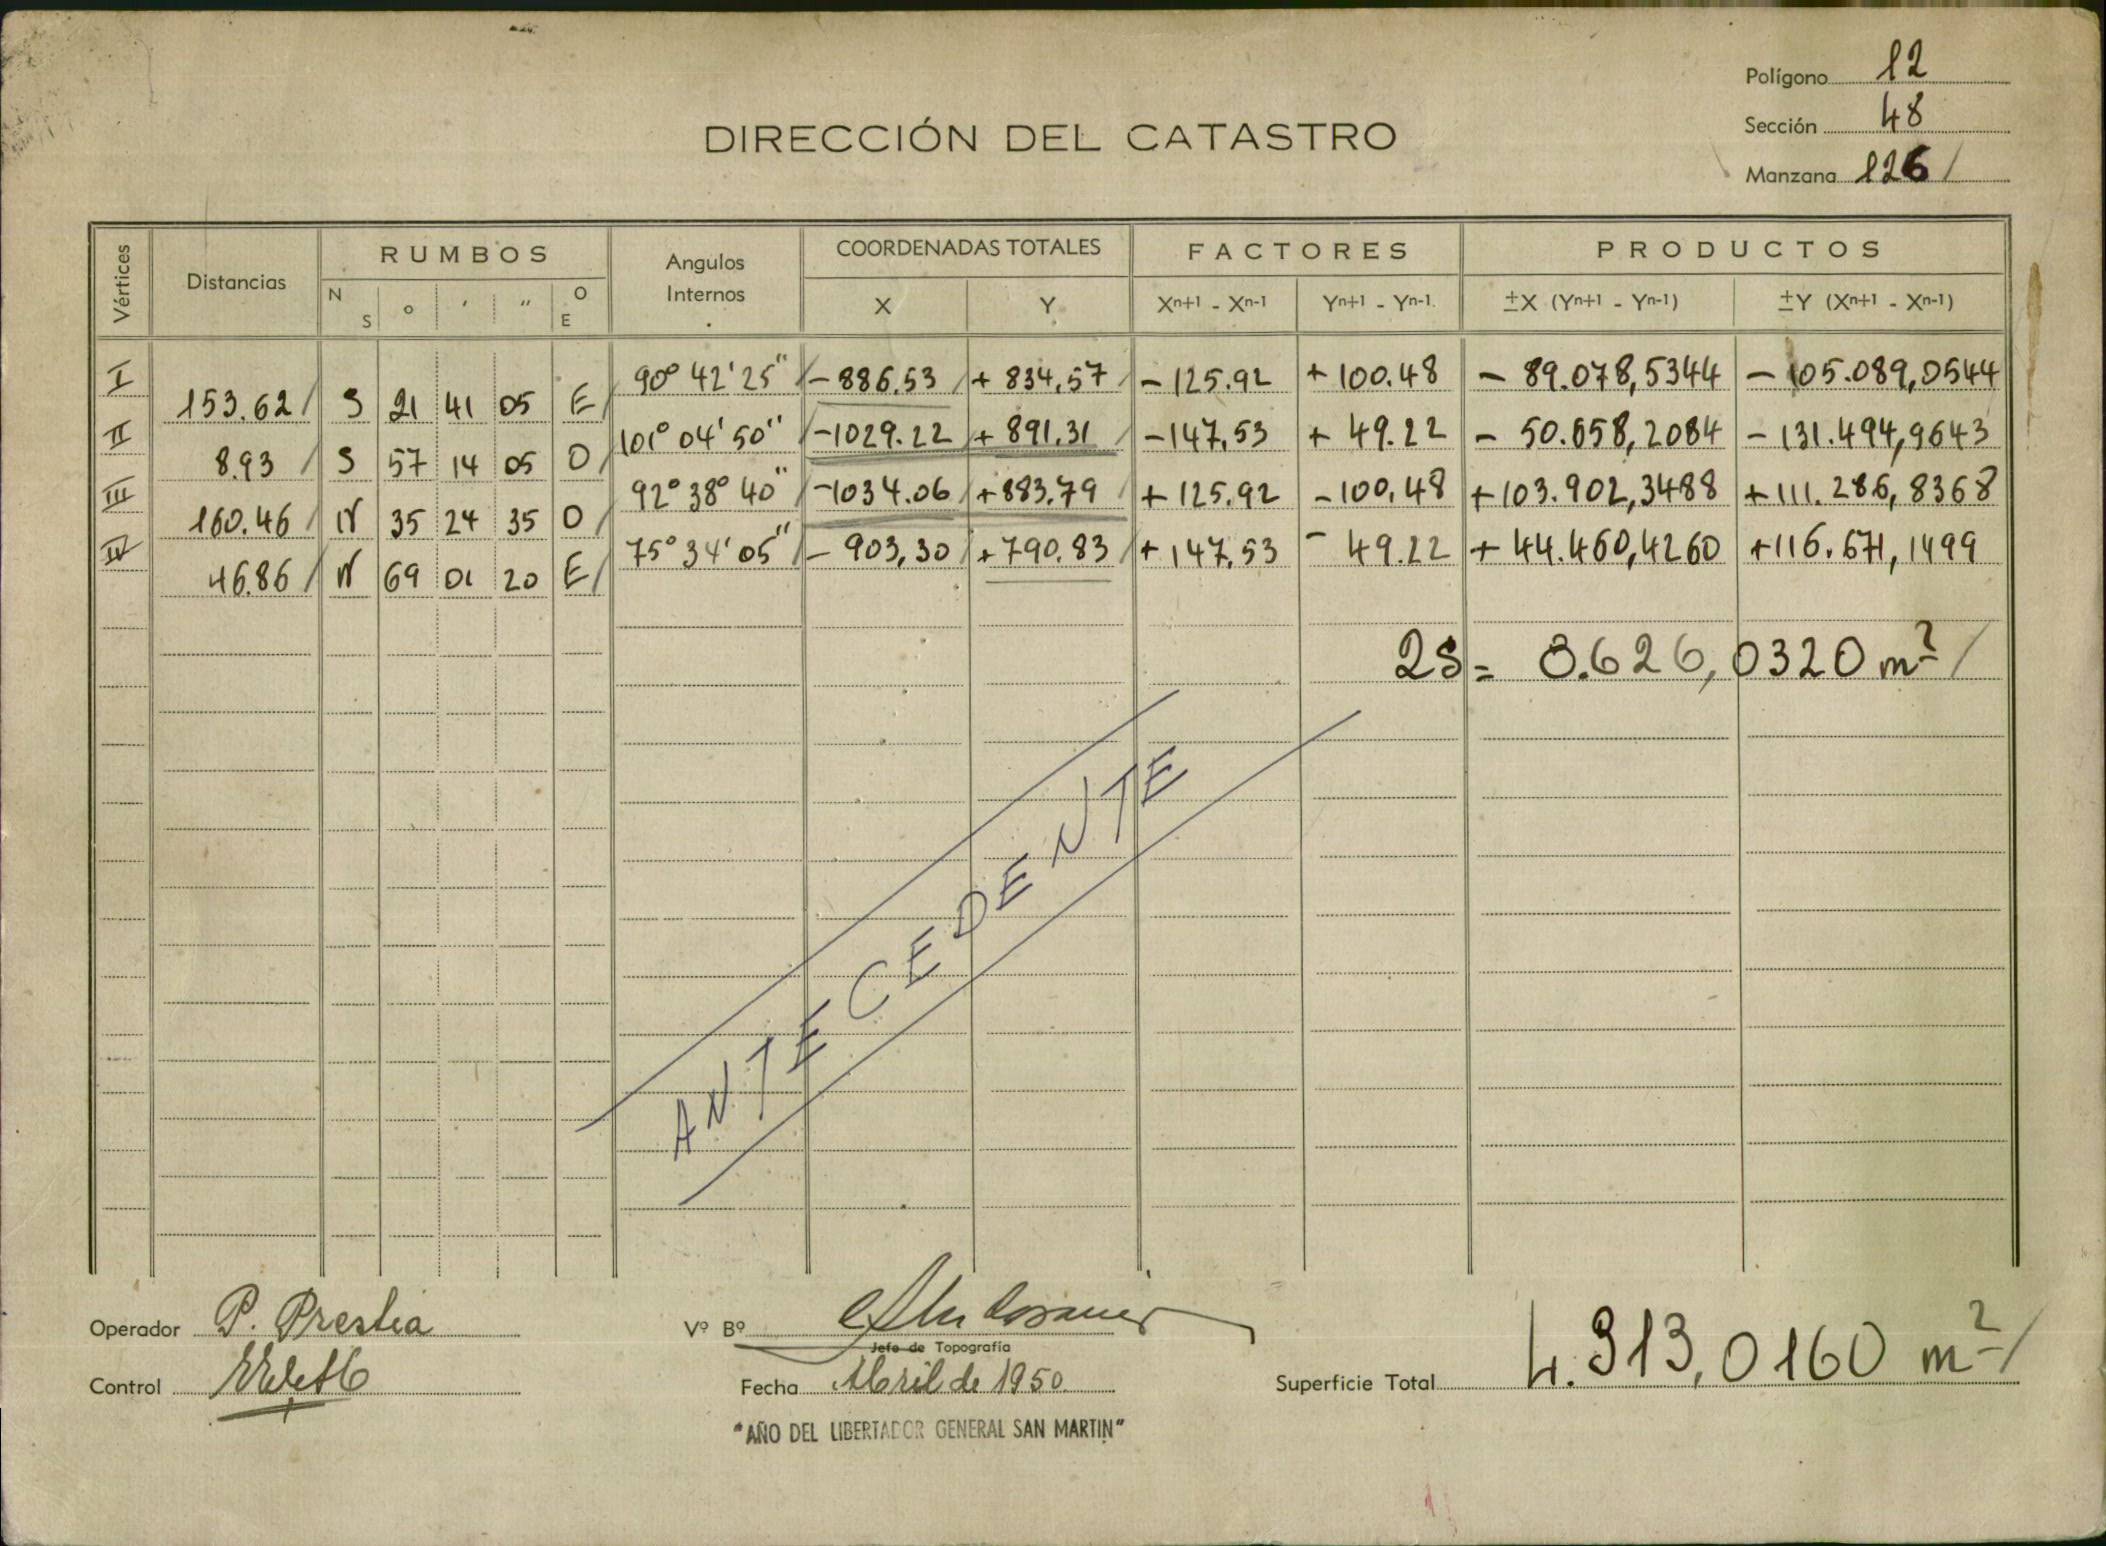 Polígono 12
Sección 48
Manzana 126/
DIRECCIÓN DEL CATASTRO
Vértices Distancias RUMBOS Angulos Internos COORDENADAS TOTALES FACTORES PRODUCTOS
N S ° ' " O E X Y Xn+1 - Xn-1 Yn+1 - Yn-1. ±X (Yn+1 - Yn-1) ±Y (Xn+1 - Xn-1)
I 90° 42' 25" / -886,53 / + 834,57 / -125.92 + 100.48 - 89.078,5344 - 105.089,0544
153.62 / S 21 41 05 E /
II 101° 04' 50" / -1029.22 / + 891,31 / -147,53 + 49.22 - 50.658,2084 - 131.494,9643
8.93 / S 57 14 05 O /
III 92° 38° 40" / -1034.06 / +883.79 / + 125.92 -100,48 +103.902,3488 +111.286,8368
160.46 / N 35 24 35 O /
IV 75° 34' 05" / - 903,30 / +790.83 / + 147,53 - 49.22 + 44.460,4260 +116.671,1499
46.86 / N 69 01 20 E /
2S = 8.626,0320 m² /
ANTECEDENTE
Operador P. Prestia
Control
Vº Bº
Jefe de Topografía
Fecha Abril de 1950
"AÑO DEL LIBERTADOR GENERAL SAN MARTIN"
Superficie Total 4.313,0160 m² /